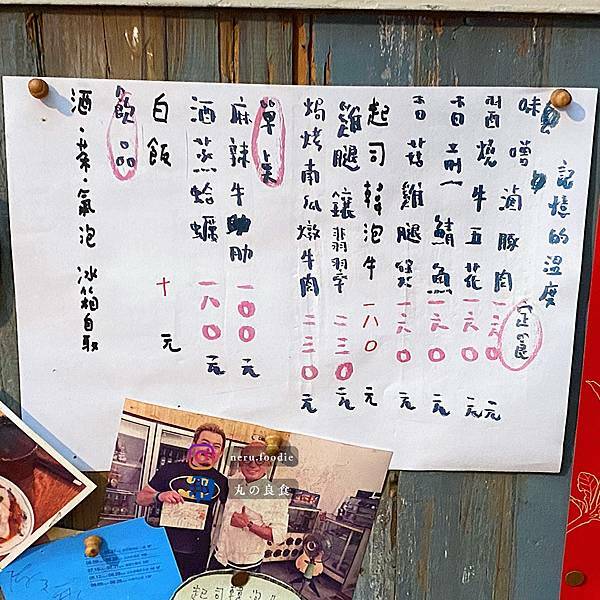 記憶的溫度
定食
味噌滷豚肉 一六〇元
醬燒牛五花 一六〇元
香煎鯖魚 一六〇元
香菇雞腿煲 一六〇元
起司乾泡牛 一八〇元
雞腿鑲翡翠 二三〇元
焗烤南瓜燉牛肉 二三〇元
單点
麻辣牛肋 一〇〇元
酒蒸蛤蠣 一六〇元
白飯 十元
飲品
酒、茶、氣泡 冰箱自取
neru.foodie
丸の良食